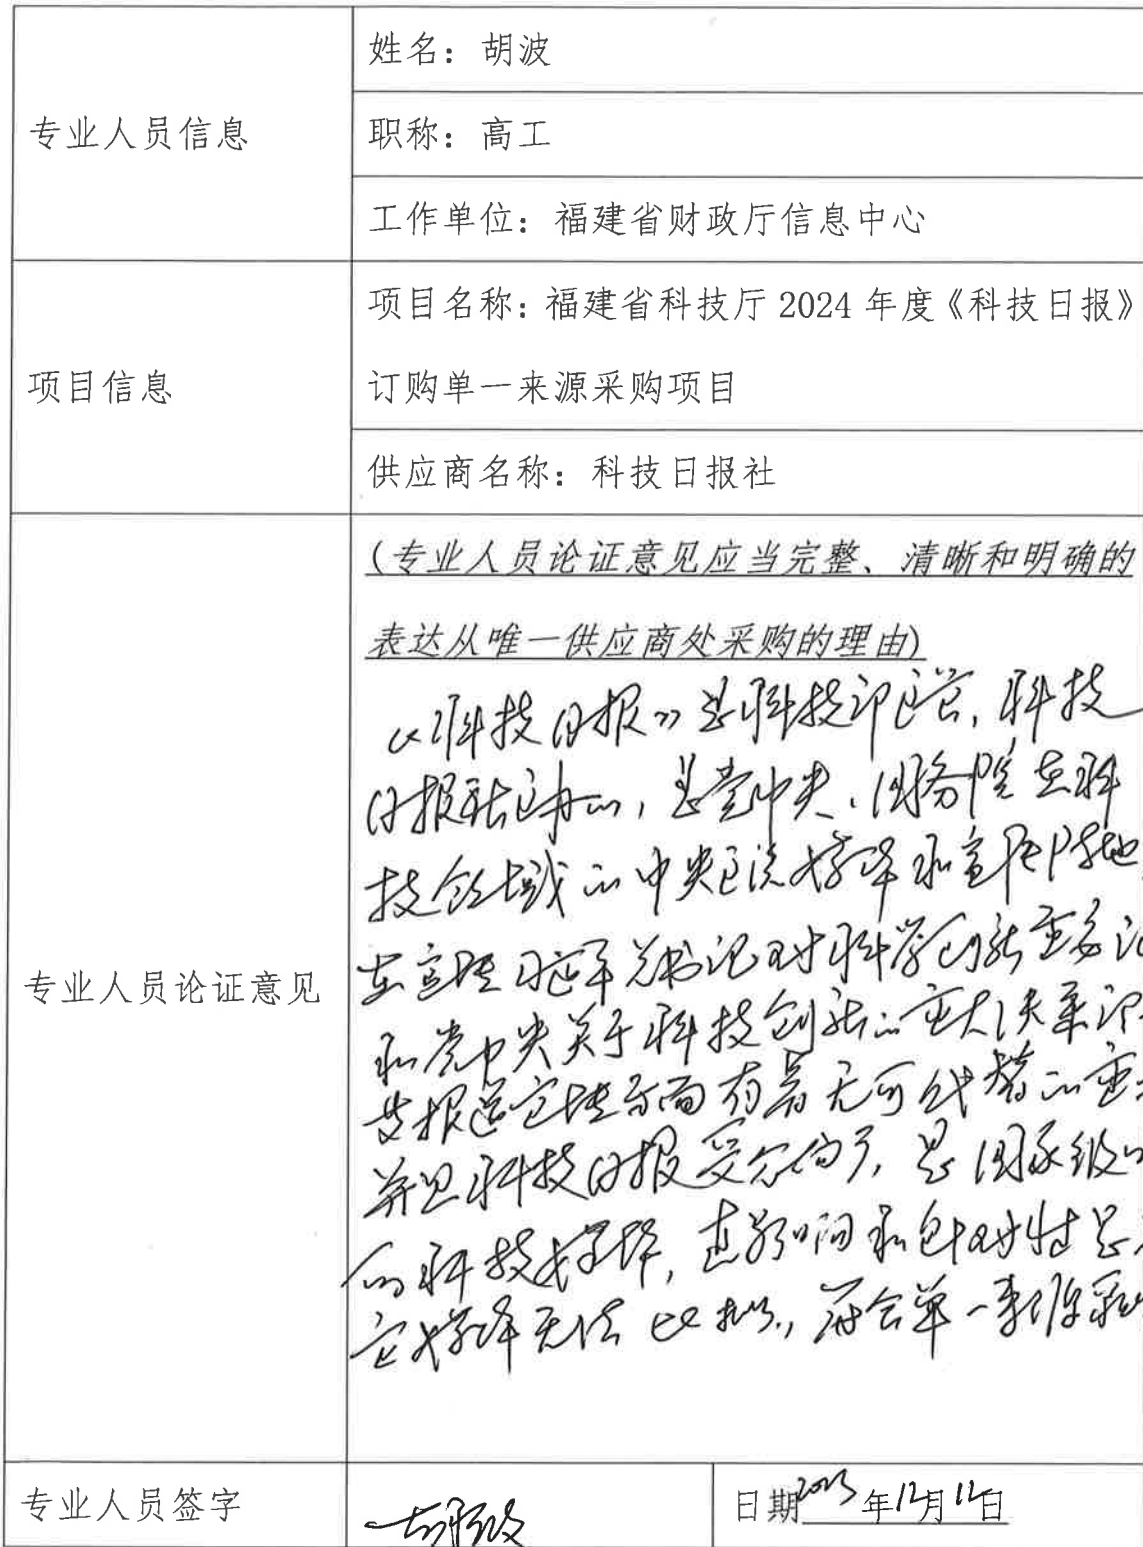 专业人员信息
姓名：胡波
职称：高工
工作单位：福建省财政厅信息中心
项目信息
项目名称：福建省科技厅 2024 年度《科技日报》
订购单一来源采购项目
供应商名称：科技日报社
专业人员论证意见
（专业人员论证意见应当完整、清晰和明确的
表达从唯一供应商处采购的理由）
《科技日报》是科技部主管，科技
日报社主办的，是党中央、国务院在科
技领域的中央主流媒体和宣传阵地
在宣传习近平总书记对科学创新重要论
和党中央关于科技创新的重大决策部
报道宣传方面有着无可代替的重
并且科技日报受众面广，是国家级
的科技媒体，其影响和针对性是
它媒体无法比拟，符合单一来源采
专业人员签字
胡波
日期2023年12月12日